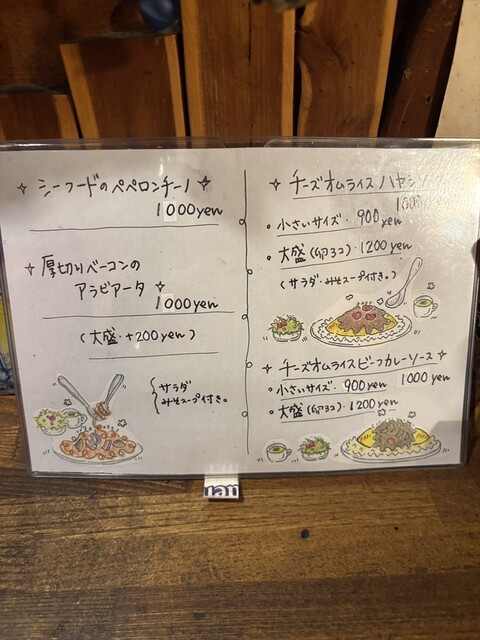 シーフードのペペロンチーノ
1000yen
厚切りベーコンの
アラビアータ
1000yen
(大盛・+200yen)
サラダ
みそスープ付き。
チーズオムライスハヤシソ
小さいサイズ・900yen
大盛(卵3コ)・1200yen
(サラダ・みそスープ付き。)
チーズオムライスビーフカレーソース
1000yen
小さいサイズ・900yen
大盛(卵3コ)・1200yen